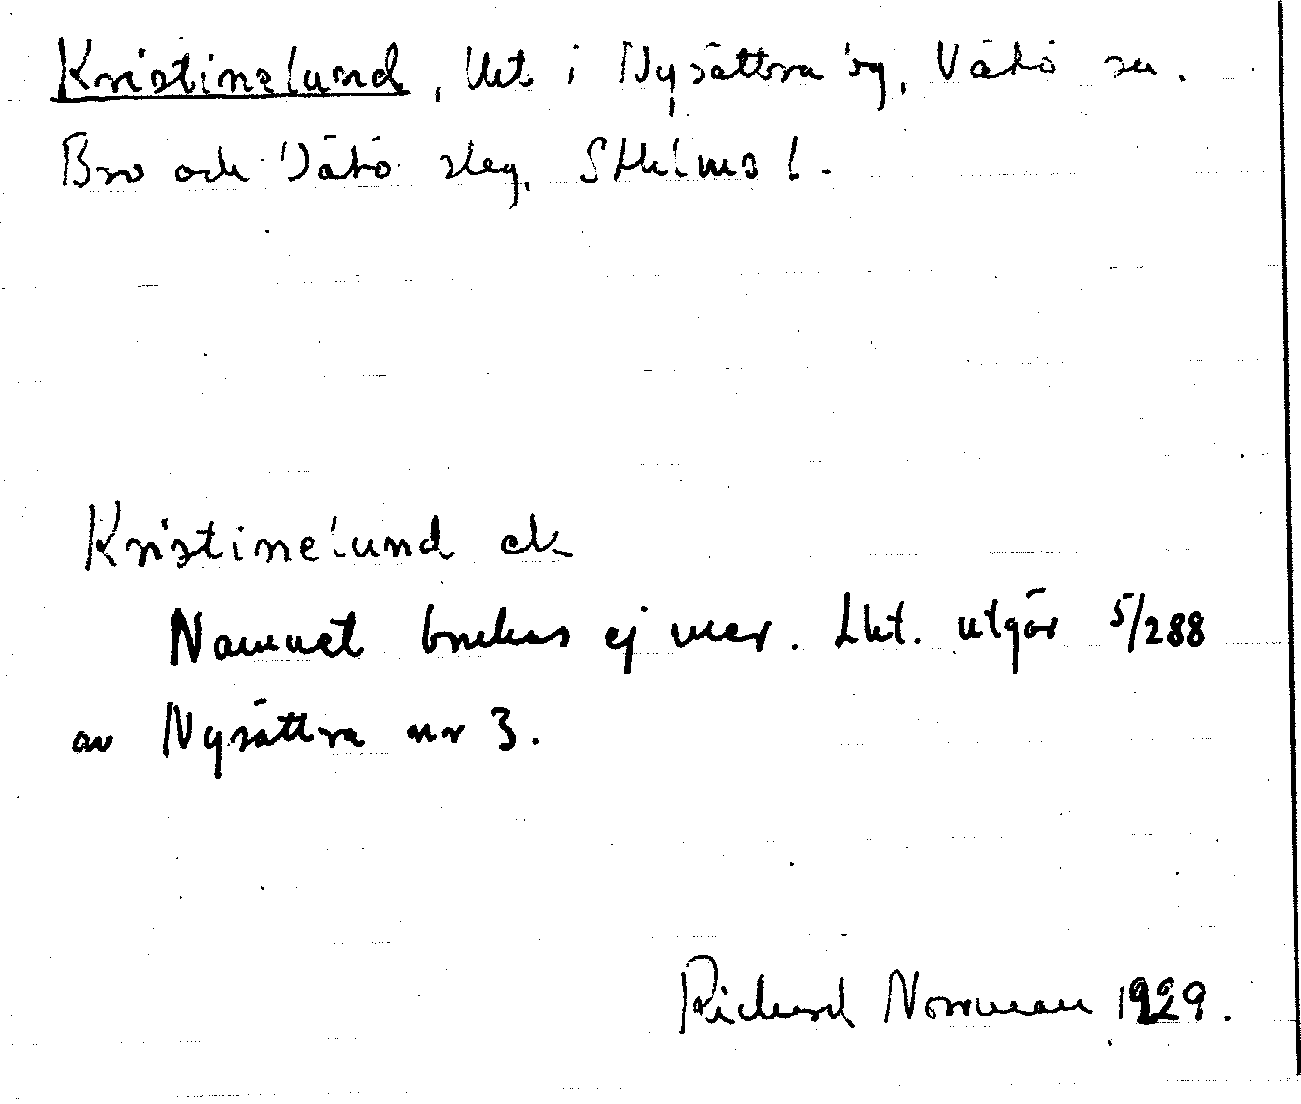 Kristinelund, lht i Nysättra by, Vätö sn.
Bro och Vätö slag, Sthlms l.
Kristinelund ck
Namnet brukas ej mer. Lht. utgör 5/288
av Nysättra nr 3.
Richard Norrman 1929.